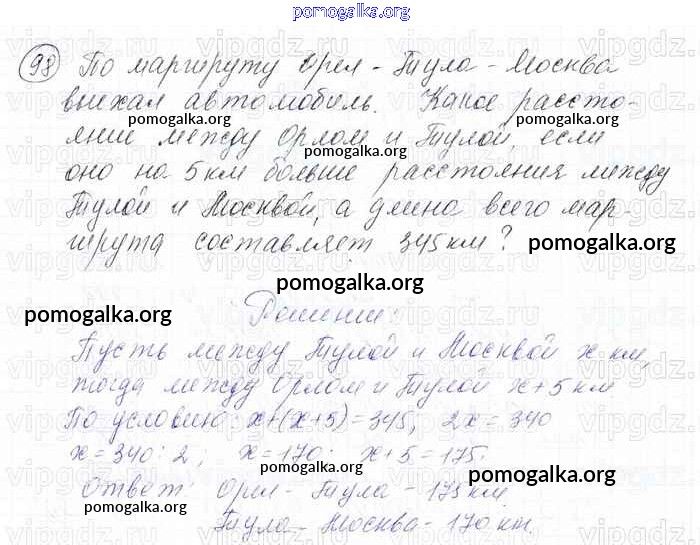 pomogalka.org
98 По маршруту Орел - Тула - Москва
выехал автомобиль. Какое рассто-
pomogalka.org pomogalka.org
яние между Орлом и Тулой, если
pomogalka.org pomogalka.org
оно на 5 км больше расстояния между
Тулой и Москвой, а длина всего мар-
шрута составляет 345 км? pomogalka.org
pomogalka.org
pomogalka.org Решение: pomogalka.org
Пусть между Тулой и Москвой x км,
тогда между Орлом и Тулой x+5 км
По условию: x+(x+5)=345, 2x=340
x=340:2; x=170; x+5=175.
pomogalka.org pomogalka.org
Ответ: Орел - Тула - 175 км
pomogalka.org
Тула - Москва - 170 км.
vipgdz.ru